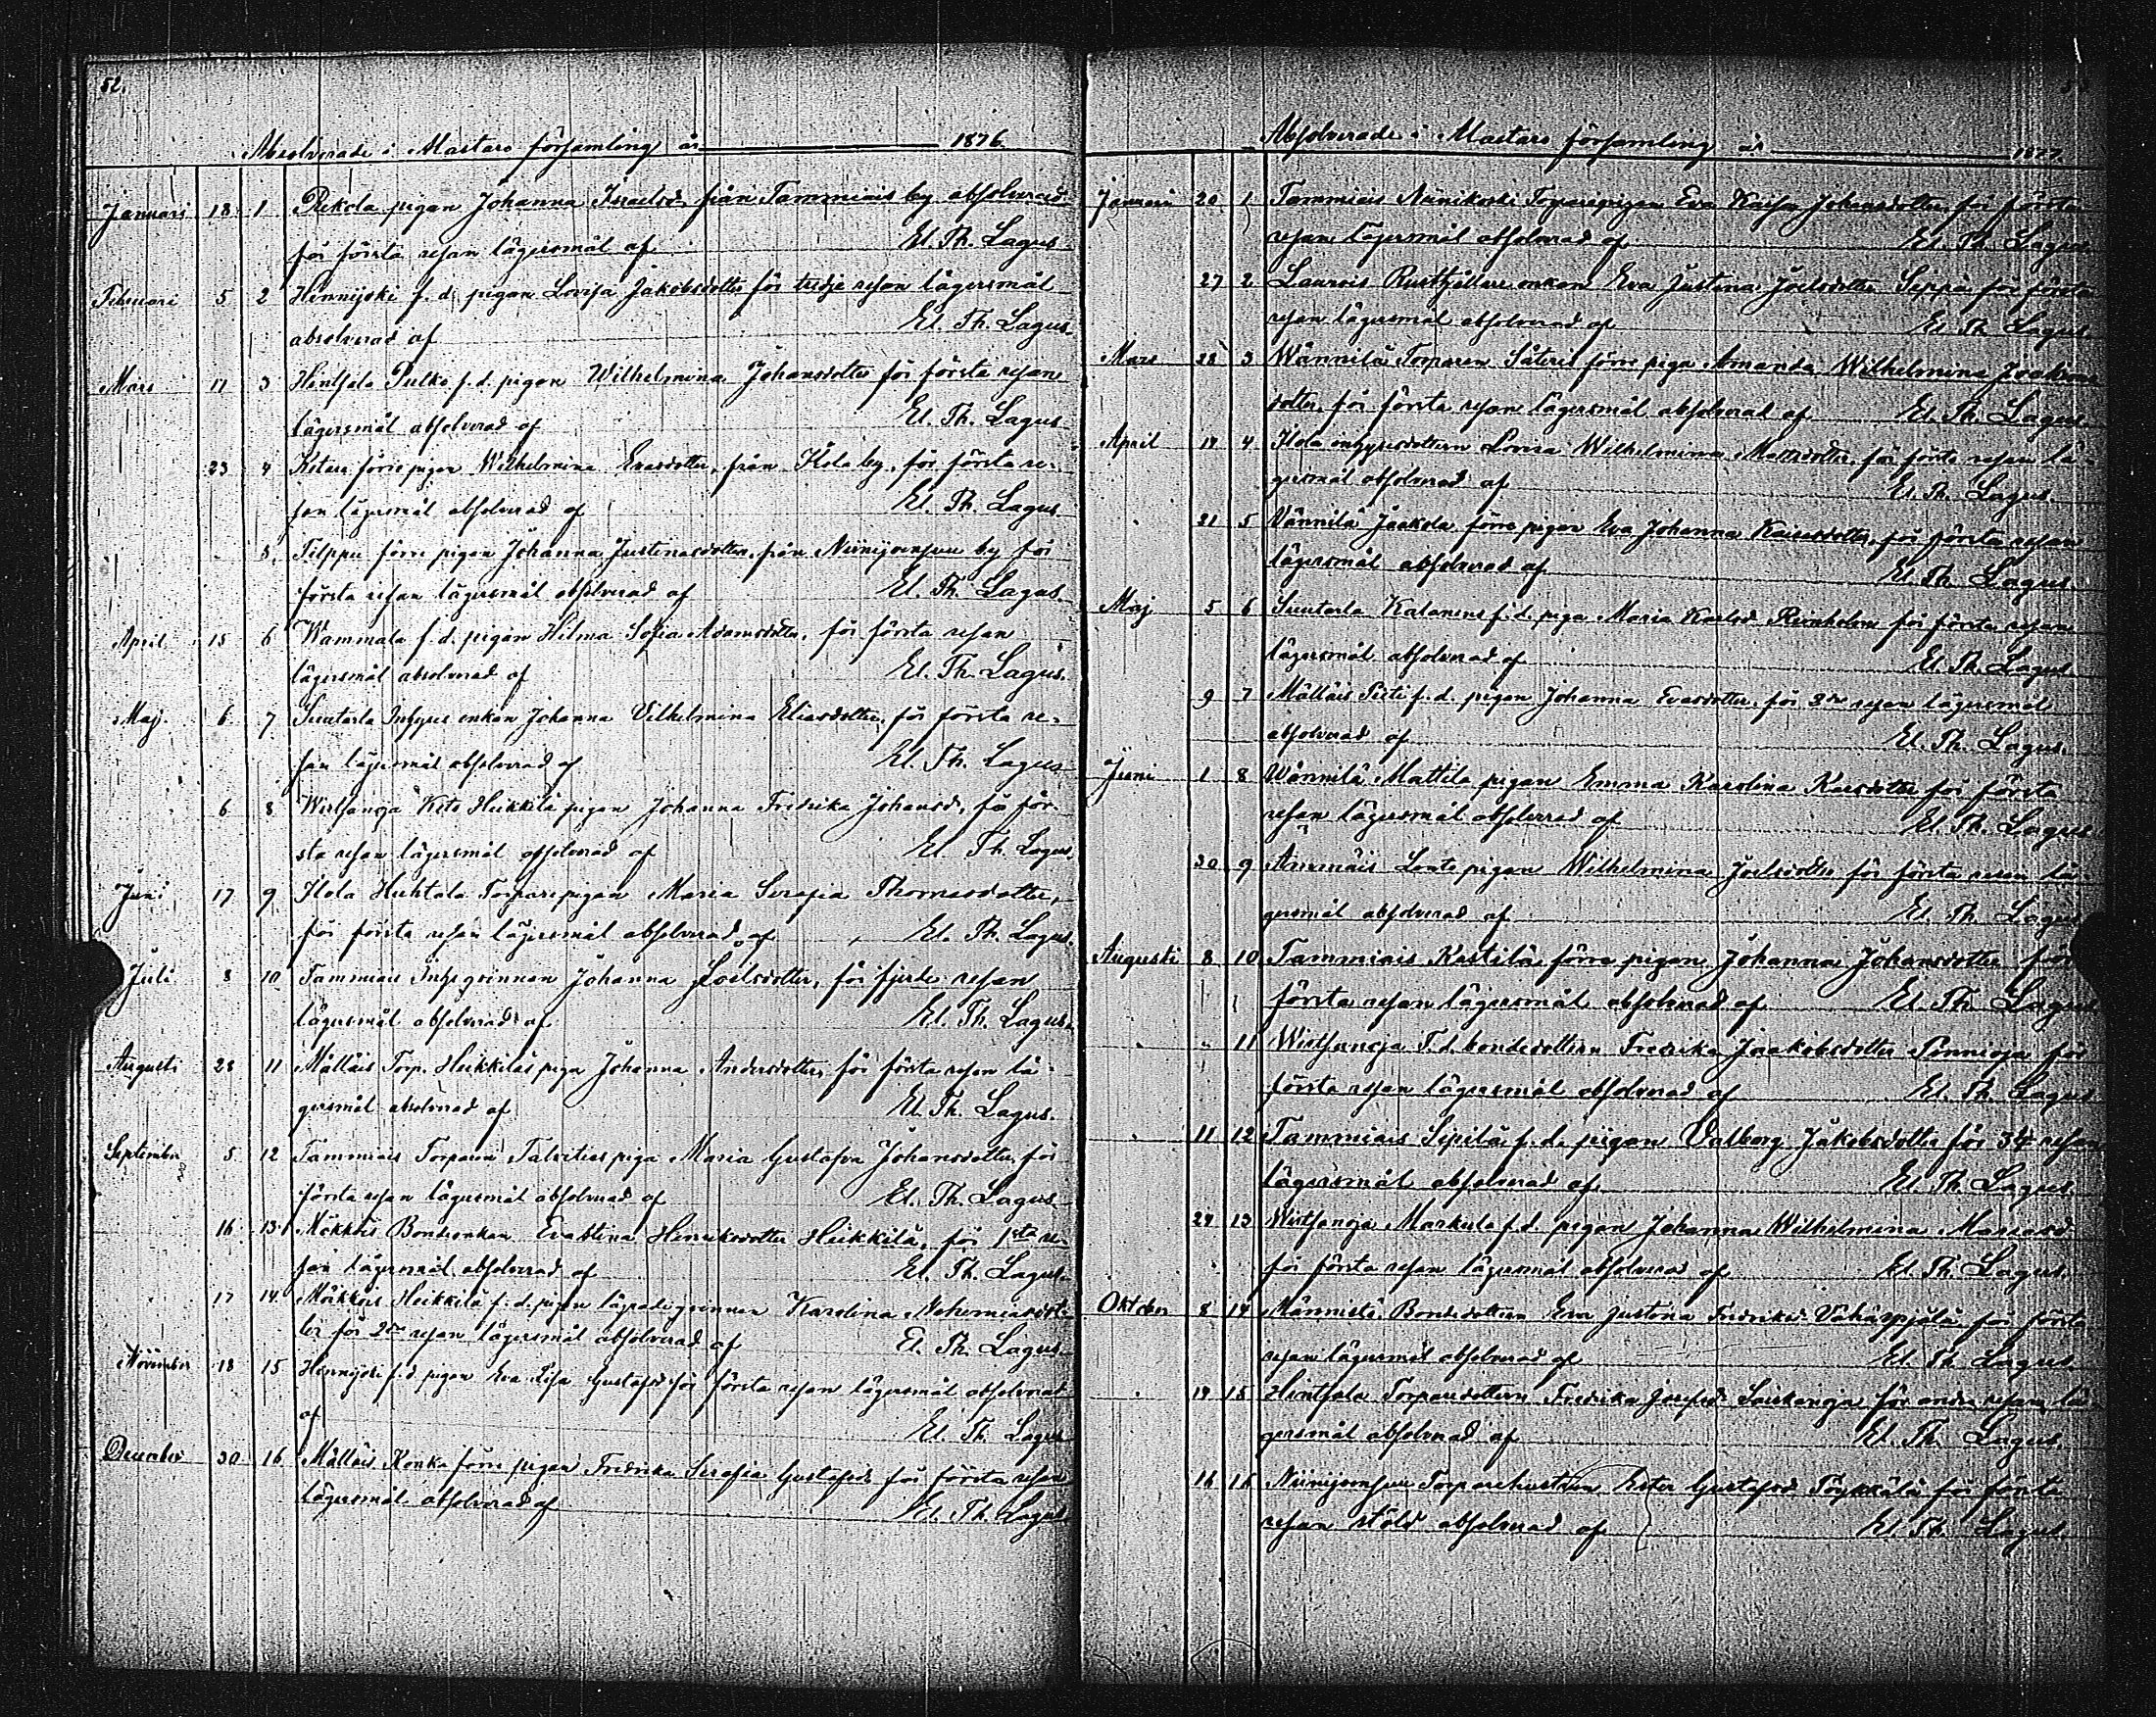 52.
Absolverade i Mastars församling år 1876.
Januari 18 1 Pekola pigan Johanna Israelsd. från Tammiais by absolverad
för första resan lägersmål af El. Th. Lagus
Februari 5 2 Hennijoki f. d. pigan Lovisa Jakobsdotter för tredje resan lägersmål
absolverad af El. Th. Lagus.
Mars 17 3 Hintsala Pulko f. d. pigan Wilhelmina Johansdotter för första resan
lägersmål absolverad af El. Th. Lagus
23 4 Ketara förre pigan Wilhelmina Evasdotter, från Ilola by, för första re-
san lägersmål absolverad af El. Th. Lagus
5. Filppu förre pigan Johanna Justinasdotter, från Niinijoensuu by för
första resan lägersmål absolverad af El. Th. Lagus.
April 15 6 Wammala f. d. pigan Hilma Sofia Adamsdotter, för första resan
lägersmål absolverad af El. Th. Lagus.
Maj. 6 7 Suutarla Inhyses enkan Johanna Vilhelmina Eliasdotter, för första re-
san lägersmål absolverad af El. Th. Lagus
6 8 Wirtsanoja Keto Heikkilä pigan Johanna Fredrika Johansd., för för-
sta resan lägersmål absolverad af El. Th. Lagus.
Juni 17 9 Ilola Huhtala Torparepigan Maria Serafia Thomasdotter,
för första resan lägersmål absolverad af El. Th. Lagus.
Juli 8 10 Tammiais Johanna Joelsdotter, för fjerde resan
lägersmål absolverad af El. Th. Lagus.
Augusti 28 11 Mälläis Torp. Heikkiläs piga Johanna Andersdotter, för första resan lä-
gersmål absolverad af El. Th. Lagus.
September 5 12 Tammiais Torparen Talvities piga Maria Gustafva Johansdotter, för
första resan lägersmål absolverad af El. Th. Lagus
16 13 Mäkkäis Bondeenkan Evastina Henriksdotter Heikkilä, för 1sta re-
san lägersmål absolverad af El. Th. Lagus.
17 14 Mäkkäis Heikkilä f. d. pigan lägradeqvinnan Karolina Nehemiasdot-
ter för 2dra resan lägersmål absolverad af El. Th. Lagus.
November 18 15 Hennijoki f. d. pigan Eva Lisa Gustafsd för första resan lägersmål absolverad
af El. Th. Lagus
December 30 16 Mälläis Konka förre pigan Fredrika Serafia Gustafsd. för första resan
lägersmål absolverad af El. Th. Lagus
Absolverade i Mastars församling år 1877.
Januari 20 1 Tammiais Niinikoski Torparepigan Eva Kaisa Johansdotter, för första
resan lägersmål absolverad af El. Th. Lagus
27 2 Laurois Rusthållare enkan Eva Justina Joelsdotter Seppä för första
resan lägersmål absolverad af El. Th. Lagus
Mars 28 3 Wännilä Torparen förre piga Amanda Wilhelmina
dotter, för första resan lägersmål absolverad af El. Th. Lagus.
April 14 4 Ilola Lovisa Wilhelmina Mattsdotter, för första resan lä-
gersmål absolverad af El. Th. Lagus.
21 5 Vännilä Jaakola förre pigan Eva Johanna Kaisasdotter, för första resan
lägersmål absolverad af El. Th. Lagus.
Maj 5 6 Suutarla f. d. piga Maria Karlsd för första resan
lägersmål absolverad af El. Th. Lagus
9 7 Mälläis f. d. pigan Johanna Evasdotter, för resan lägersmål
absolverad af El. Th. Lagus.
Juni 1 8 Wännilä Mattila pigan Emma Karolina för första
resan lägersmål absolverad af El. Th. Lagus
30 9 Ämmäis pigan Wilhelmina Joelsdotter för första resan lä-
gersmål absolverad af El. Th. Lagus
Augusti 8 10 Tammiais Kestilä förre pigan Johanna Johansdotter för
första resan lägersmål absolverad af El. Th. Lagus
" 11 Wirtsanoja F. d. bondedottern Fredrika Jaakobsdotter för
första resan lägersmål absolverad af El. Th. Lagus
11 12 Tammiais Sipilä f. d. pigan Valborg Jakobsdotter för 3dje resan
lägersmål absolverad af El. Th. Lagus.
24 13 Wirtsanoja Markula f. d. pigan Johanna Wilhelmina
för första resan lägersmål absolverad af El. Th. Lagus.
Oktober 8 14 Männistö Bondedottern Eva Justina Fredriksd. för första
resan lägersmål absolverad af El. Th. Lagus
14 15 Hintsala Torparedottern Fredrika Josefsd för andra resan lä-
gersmål absolverad af El. Th. Lagus.
16 16 Niinijoensuu Torparehustrun Ester Gustafsd för första
resan stöld absolverad af El. Th. Lagus